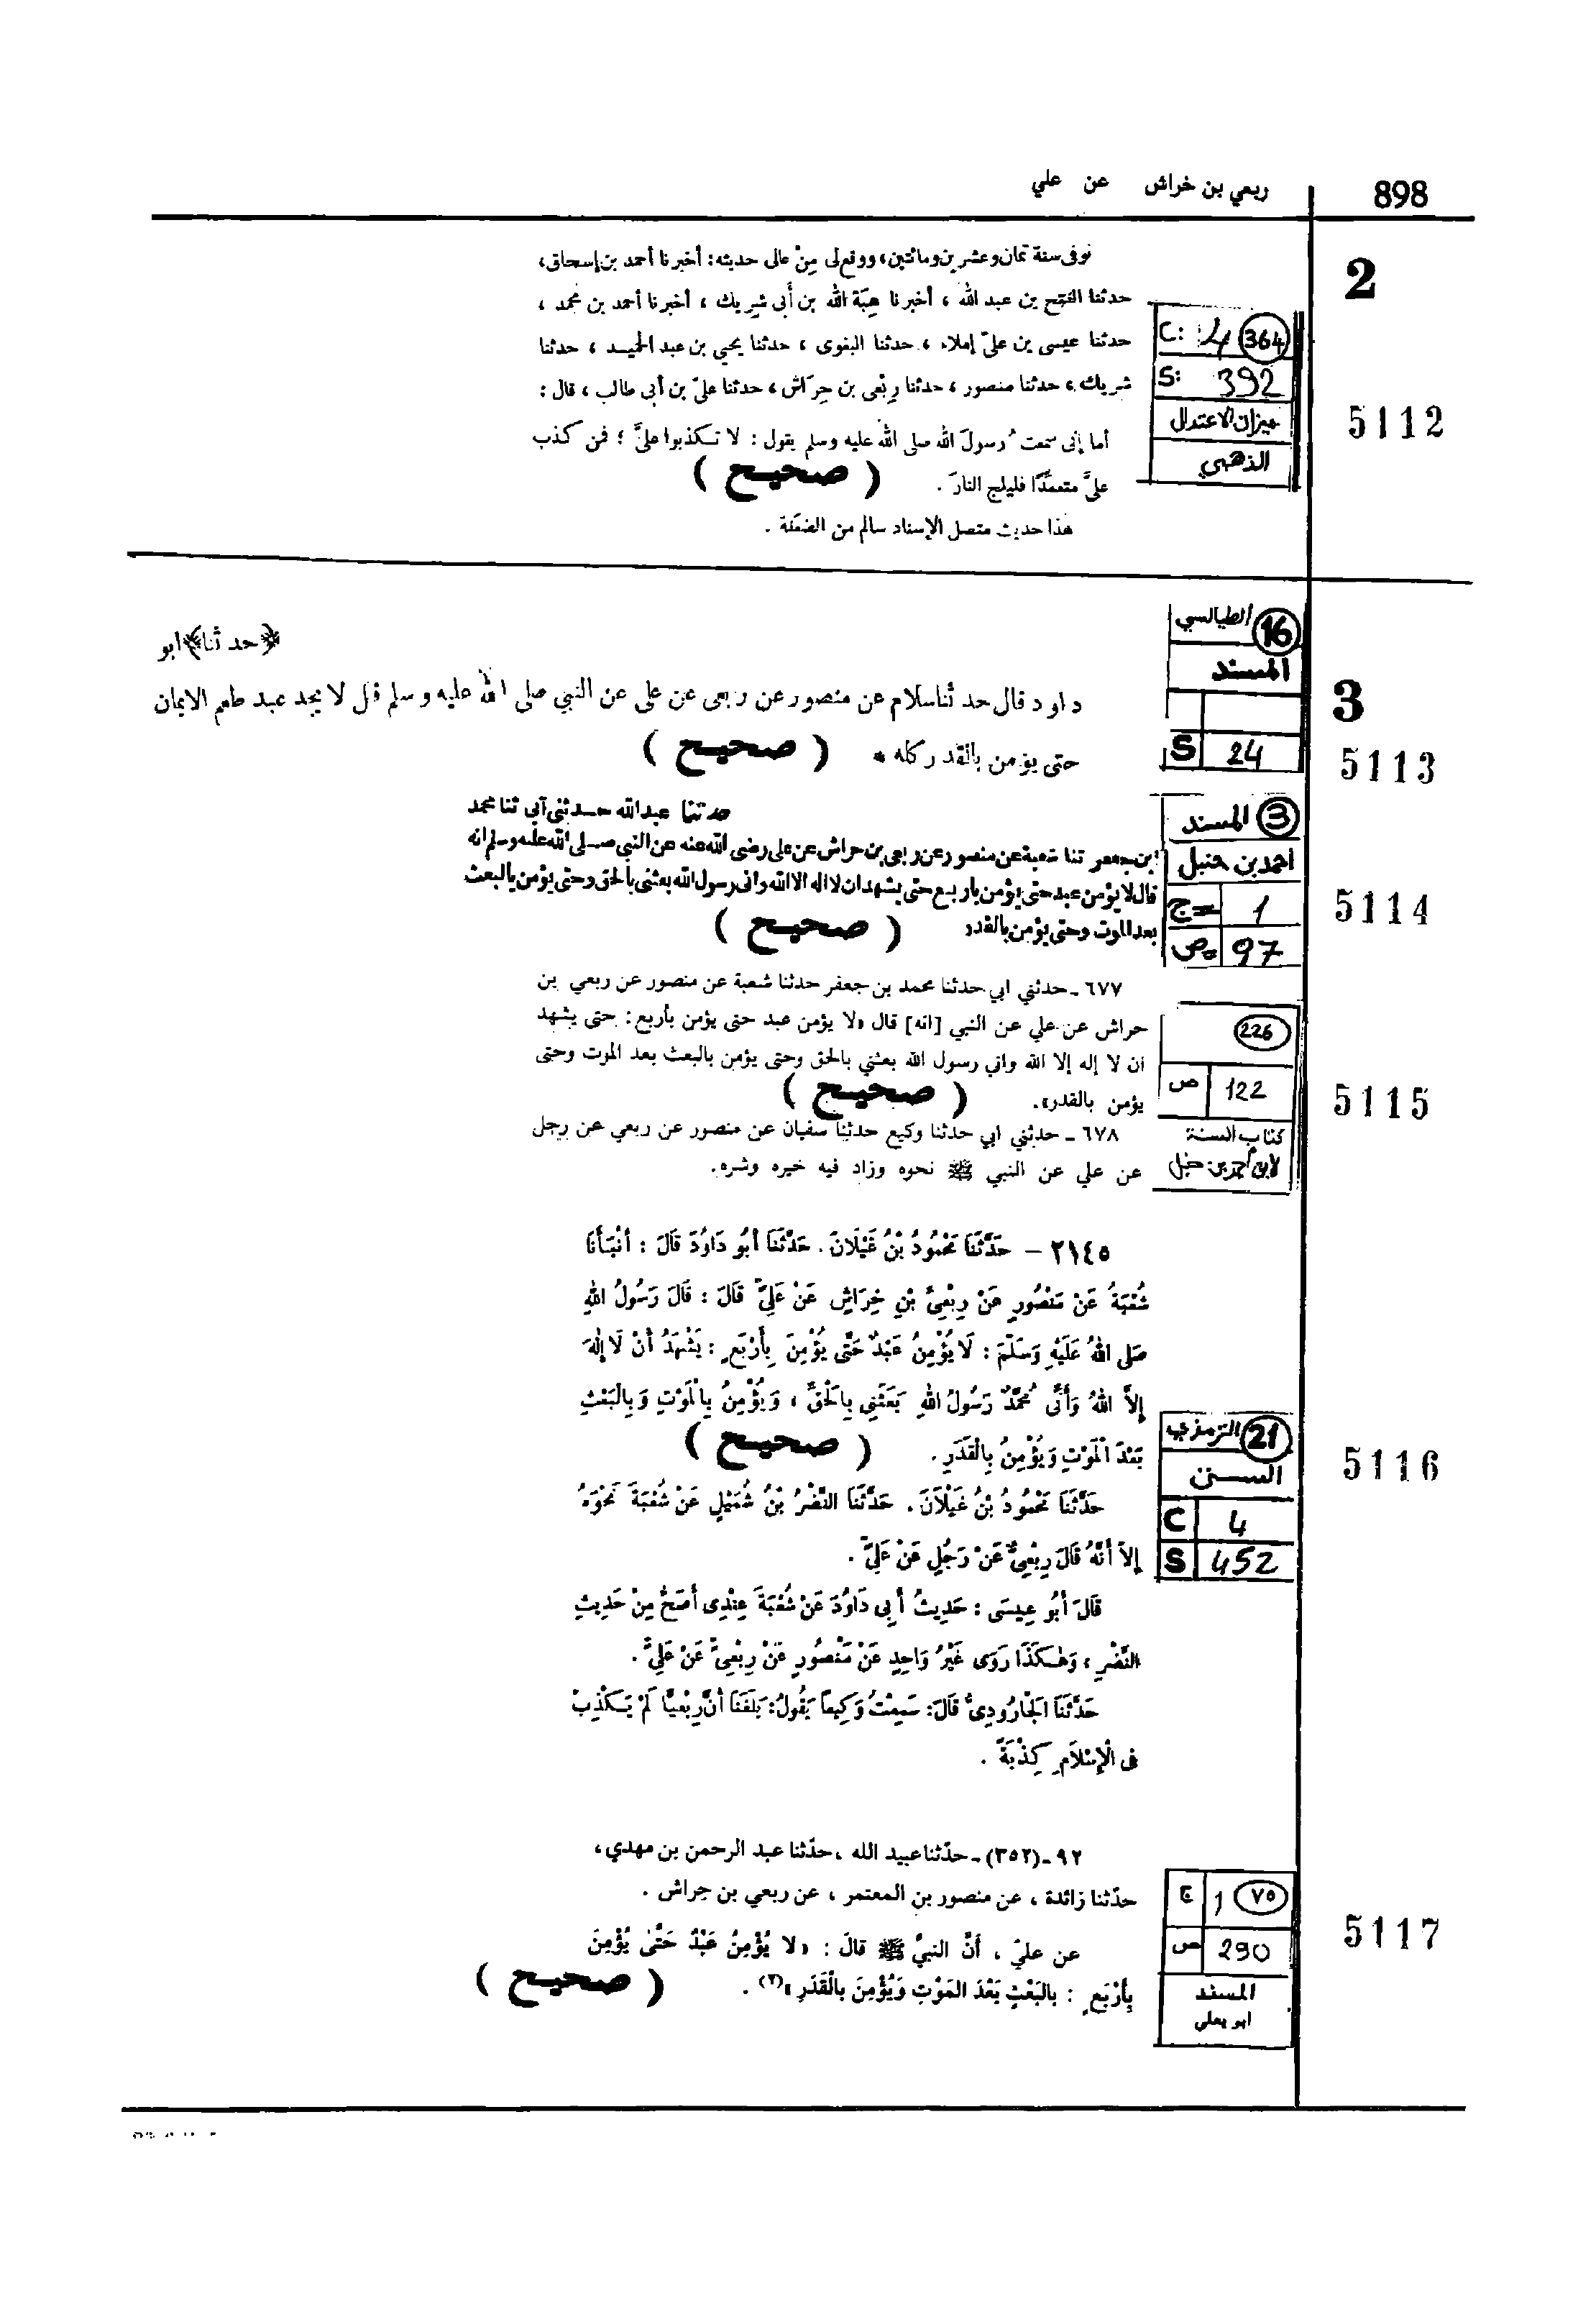 898
ربعي بن خراش عن علي
2
توفى سنة ثمان وعشرين ومائتين، ووقع لى مِنْ عالى حديثه: أخبرنا أحمد بن إسحاق،
حدثنا الفتح بن عبد الله ، أخبرنا هِبَة الله بن أبى شريك ، أخبرنا أحمد بن محمد ،
حدثنا عيسى بن علىّ إملاء ، حدثنا البغوى ، حدثنا يحيى بن عبد الحميد ، حدثنا
شريك ، حدثنا منصور ، حدثنا رِبْعى بن حِرَاش ، حدثنا علىّ بن أبى طالب ، قال :
أما إنى سمعت رسولَ الله صلى الله عليه وسلم يقول : لا تكذبوا علىَّ ؛ فمن كذب
علىَّ متعمّدًا فليلج النارَ . ( صحيح )
هذا حديث متصل الإسناد سالم من الضعَفَة .
C: 4 364
S: 392
ميزان الاعتدال
الذهبي
5112
﴿حدثنا﴾ ابو
داود قال حدثنا سلام عن منصور عن ربعى عن على عن النبي صلى الله عليه وسلم قال لا يجد عبد طعم الايمان
حتى يؤمن بالقدر كله * ( صحيح )
الطيالسي 16
المسند
S 24
3
5113
حدثنا عبدالله حدثنى أبي ثنا محمد
ابن جعفر ثنا شعبة عن منصور عن ربعى بن حراش عن على رضى الله عنه عن النبى صلى الله عليه وسلم انه
قال لا يؤمن عبد حتى يؤمن باربع حتى يشهد ان لا اله الا الله وانى رسول الله بعثنى بالحق وحتى يؤمن بالبعث
بعد الموت وحتى يؤمن بالقدر ( صحيح )
المسند 3
احمد بن حنبل
ج= 1
ص= 97
5114
٦٧٧ ـ حدثني ابي حدثنا محمد بن جعفر حدثنا شعبة عن منصور عن ربعي بن
حراش عن علي عن النبي [انه] قال «لا يؤمن عبد حتى يؤمن بأربع: حتى يشهد
ان لا إله إلا الله واني رسول الله بعثني بالحق وحتى يؤمن بالبعث بعد الموت وحتى
يؤمن بالقدر». ( صحيح )
٦٧٨ ـ حدثني ابي حدثنا وكيع حدثنا سفيان عن منصور عن ربعي عن رجل
عن علي عن النبي ﷺ نحوه وزاد فيه خيره وشره.
226
ص 122
كتاب السنة
لابن أحمد بن حنبل
5115
٢١٤٥ – حَدَّثَنَا مَحْمُودُ بْنُ غَيْلَانَ . حَدَّثَنَا أَبُو دَاوُدَ قَالَ : أَنْبَأَنَا
شُعْبَةُ عَنْ مَنْصُورٍ عَنْ رِبْعِىِّ بْنِ خِرَاشٍ عَنْ عَلِىٍّ قَالَ : قَالَ رَسُولُ اللهِ
صَلى اللهُ عَلَيْهِ وَسَلَّمَ : لَا يُؤْمِنُ عَبْدٌ حَتَّى يُؤْمِنَ بِأَرْبَعٍ : يَشْهَدُ أَنْ لَا إِلٰهَ
إِلاَّ اللهُ وَأَنِّى مُحَمَّدٌ رَسُولُ اللهِ بَعَثَنِى بِالْحَقِّ ، وَيُؤْمِنُ بِالْمَوْتِ وَبِالْبَعْثِ
بَعْدَ الْمَوْتِ وَيُؤْمِنُ بِالْقَدَرِ . ( صحيح )
حَدَّثَنَا مَحْمُودُ بْنُ غَيْلَانَ . حَدَّثَنَا النَّضْرُ بْنُ شُمَيْلٍ عَنْ شُعْبَةَ نَحْوَهُ
إِلاَّ أَنَّهُ قَالَ رِبْعِىٌّ عَنْ رَجُلٍ عَنْ عَلِىٍّ .
قَالَ أَبُو عِيسَى : حَدِيثُ أَبِى دَاوُدَ عَنْ شُعْبَةَ عِنْدِى أَصَحُّ مِنْ حَدِيثِ
النَّضْرِ ، وَهٰكَذَا رَوَى غَيْرُ وَاحِدٍ عَنْ مَنْصُورٍ عَنْ رِبْعِىٍّ عَنْ عَلِىٍّ .
حَدَّثَنَا الْجَارُودِىُّ قَالَ: سَمِعْتُ وَكِيعاً يَقُولُ: بَلَغَنَا أَنَّ رِبْعِيًّا لَمْ يَكْذِبْ
فى الْإِسْلاَمِ كِذْبَةً .
الترمذي 21
السنن
C 4
S 452
5116
٩٢ ـ (٣٥٢) ـ حدّثنا عبيد الله ، حدّثنا عبد الرحمن بن مهدي ،
حدّثنا زائدة ، عن منصور بن المعتمر ، عن ربعي بن حِراش .
عن عليّ ، أَنَّ النبيَّ ﷺ قالَ : «لا يُؤْمِنُ عَبْدٌ حَتَّىٰ يُؤْمِنَ
بِأَرْبَعٍ : بالبَعْثِ بَعْدَ المَوْتِ وَيُؤْمِنَ بالْقَدَرِ»(٢) . ( صحيح )
ج 1 ٧٥
ص 290
المسند
ابو يعلى
5117